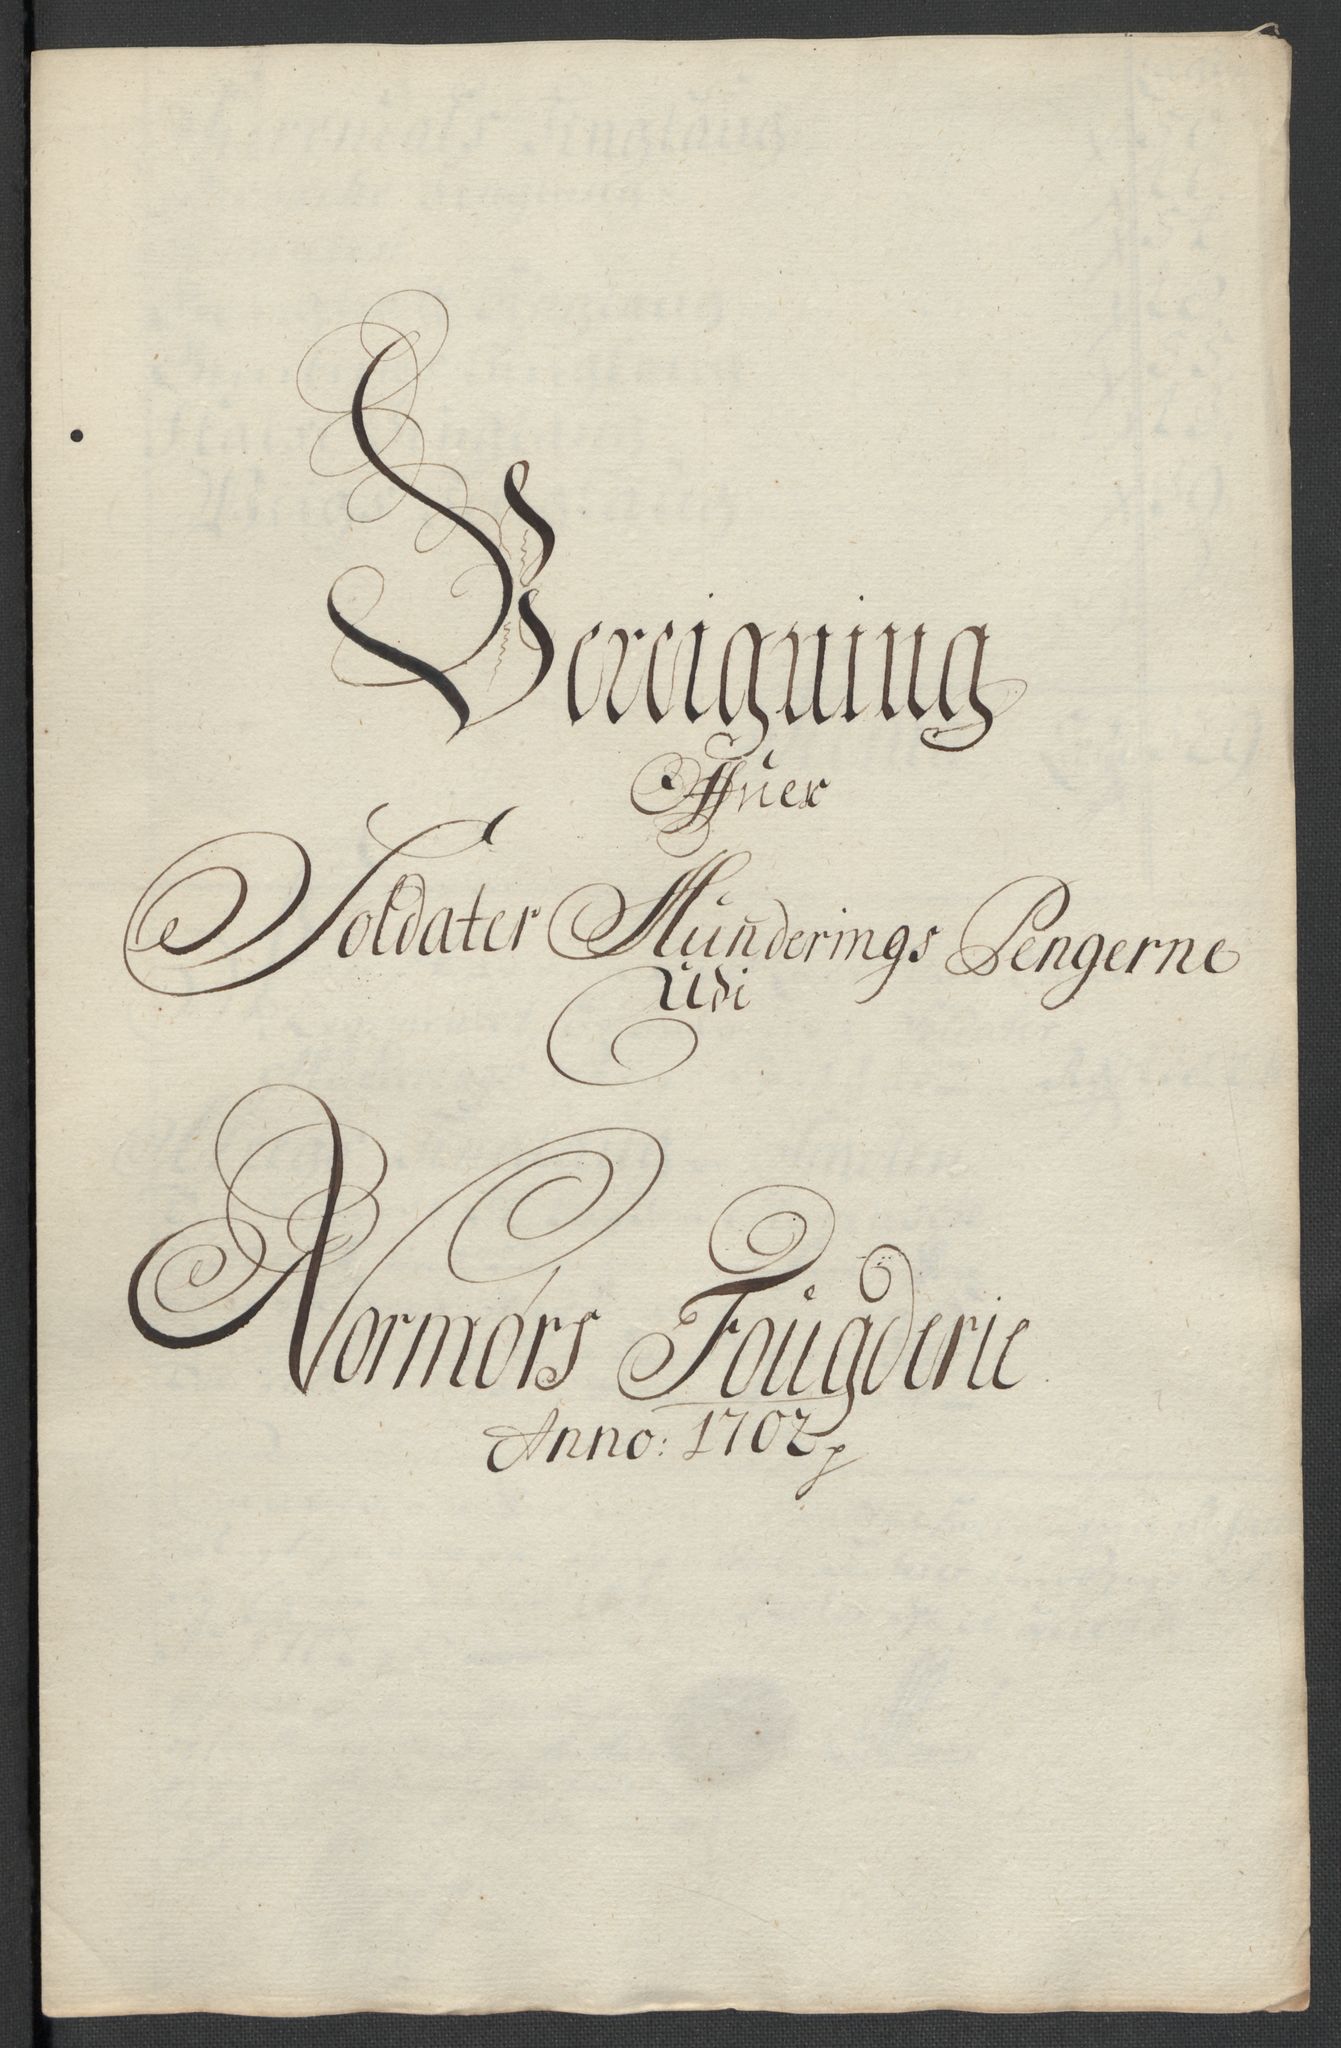 Bereigning
Offuer
Soldater Munderings Pengerne
Udi
Normørs Fougderie
Anno: 1702